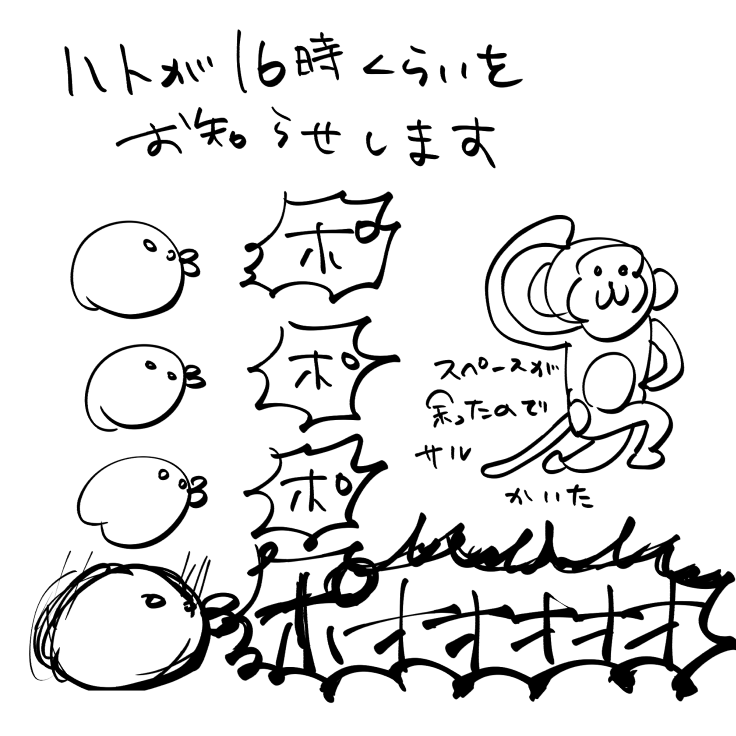 ハトが16時くらいを
お知らせします
ポ
ポ
ポ
ポオオオオオ
スペースが
余ったので
サル
かいた